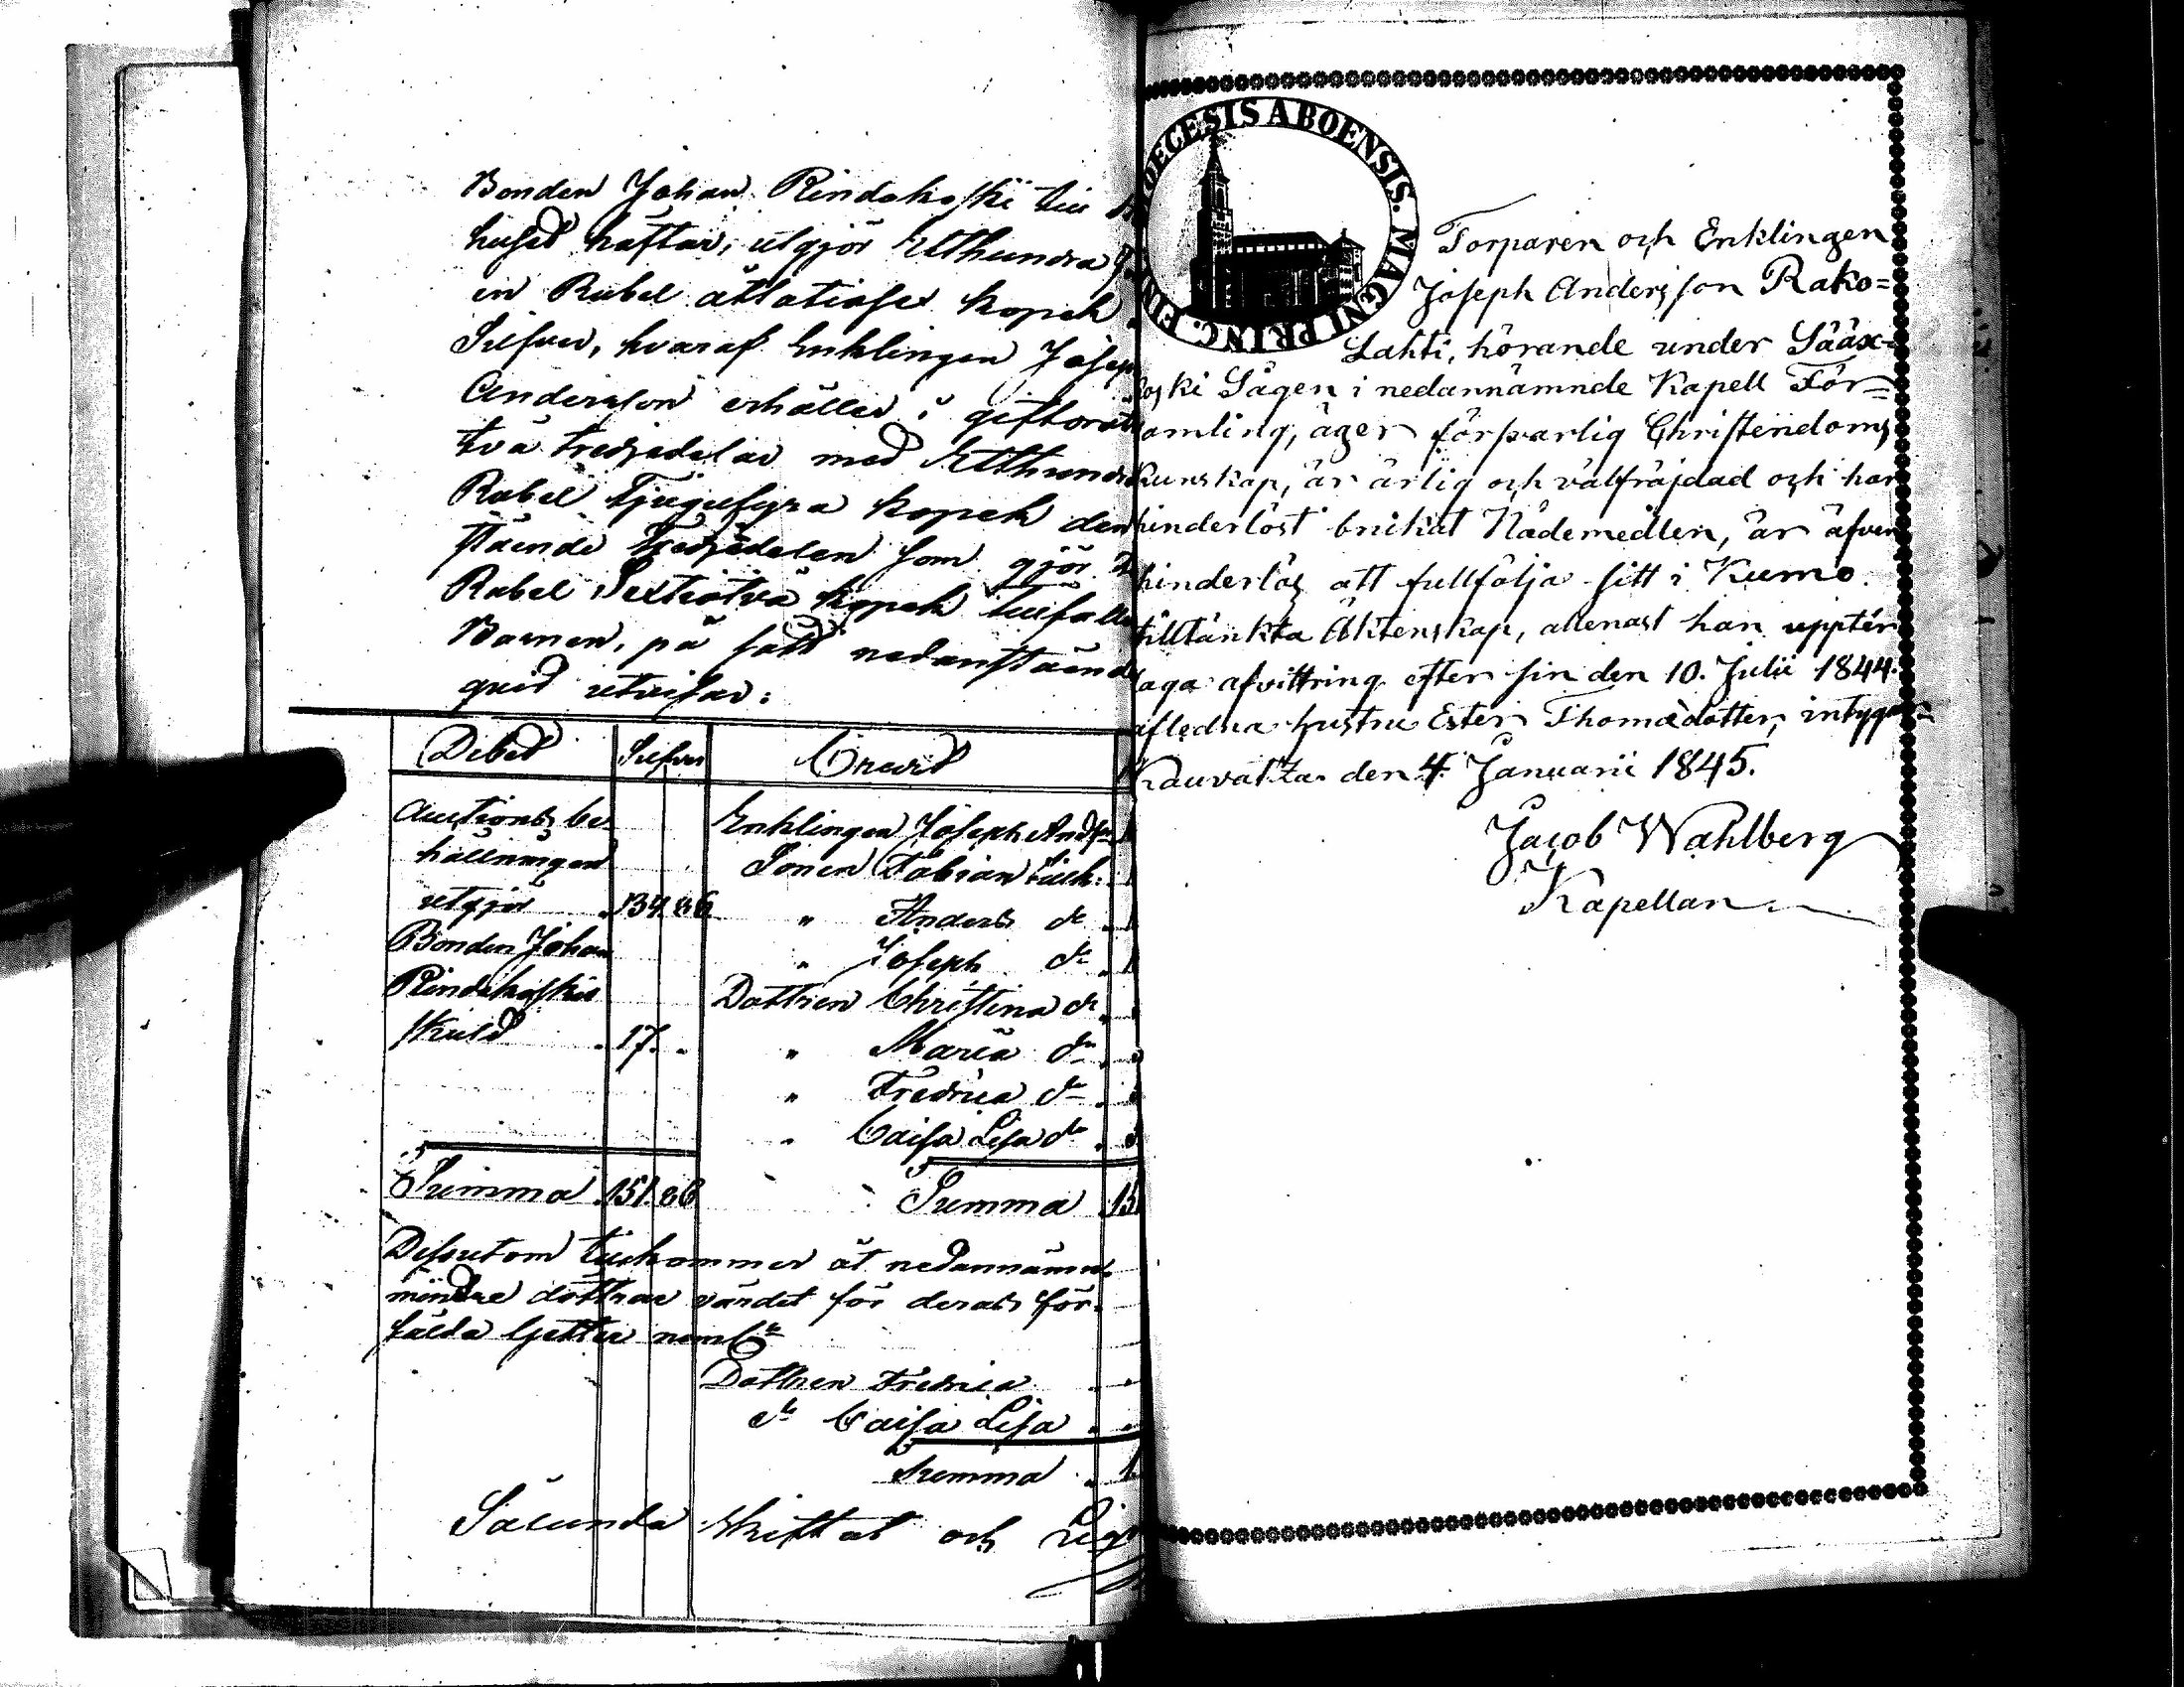 Bonden Johan Rindakoski till
huset häftar, utgjör Etthundra
en Rubel åttatiosex kopek
Silfver, hvaraf Enklingen Josep
Andersson erhåller i giftorätt
två tredjedelar med Etthundra
Rubel Tjugufyra kopek den
stående tredjedelen som gjör
Rubel Sextiotvå kopek tillfalle
Barnen, på sätt nedanstående
utvisar:
Debet Silfver Credit
Auctions be-
hållningen
utgjör 134. 86
Bonden Johan
Rindakoskis
skuld 17. -
Summa 151. 86
Enklingen Joseph Andss
Sonen Fabian
" Anders do
" Joseph do
Dottren Christina do
" Maria do
" Fredrica do
" Caisa Lisa do
Summa 15
Dessutom tillkommer åt nedannämnde
mindre döttrar värdet för deras för-
sålda Getter neml
Dottren Fredrica
do Caisa Lisa
Summa
Sålunda skiftat och
DIOECESIS ABOENSIS. MAGNI PRINC. FINL
Torparen och Enklingen
Joseph Andersson Rako=
Lahti, hörande under Sääx=
koski Sågen i nedannämnde Kapell För=
samling, äger försvarlig Christendoms
kunskap, är ärlig och välfräjdad och har
hinderlöst brukat Nådemedlen, är äfven
hinderlös att fullfölja sitt i Kumo
tilltänkta Äktenskap, allenast han uppter
laga afvittring efter sin den 10. Julii 1844.
afledna hustru Ester Thomædotter, intygar
Kauvatza den 4. Januarii 1845.
Jacob Wahlberg
Kapellan